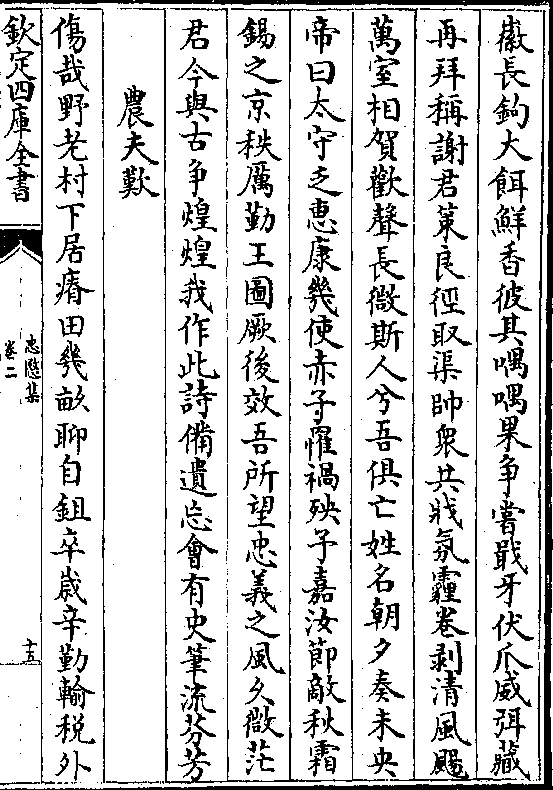 徽長鉤大餌鮮香彼其喁喁果爭嘗戢牙伏爪威弭藏
再拜稱謝君策良徑取渠帥衆共戕氛霾卷剥清風颺
萬室相賀歡聲長微斯人兮吾俱亡姓名朝夕奏未央
帝曰太守乏惠康幾使赤子罹禍殃予嘉汝節敵秋霜
錫之京秩厲勤王圖厥後效吾所望忠義之風久微茫
君今與古争煌煌我作此詩備遺忘會有史筆流芬芳
農夫歎
傷哉野老村下居瘠田幾畝聊自鉏卒歲辛勤輸税外
欽定四庫全書
忠隱集
卷二
十五